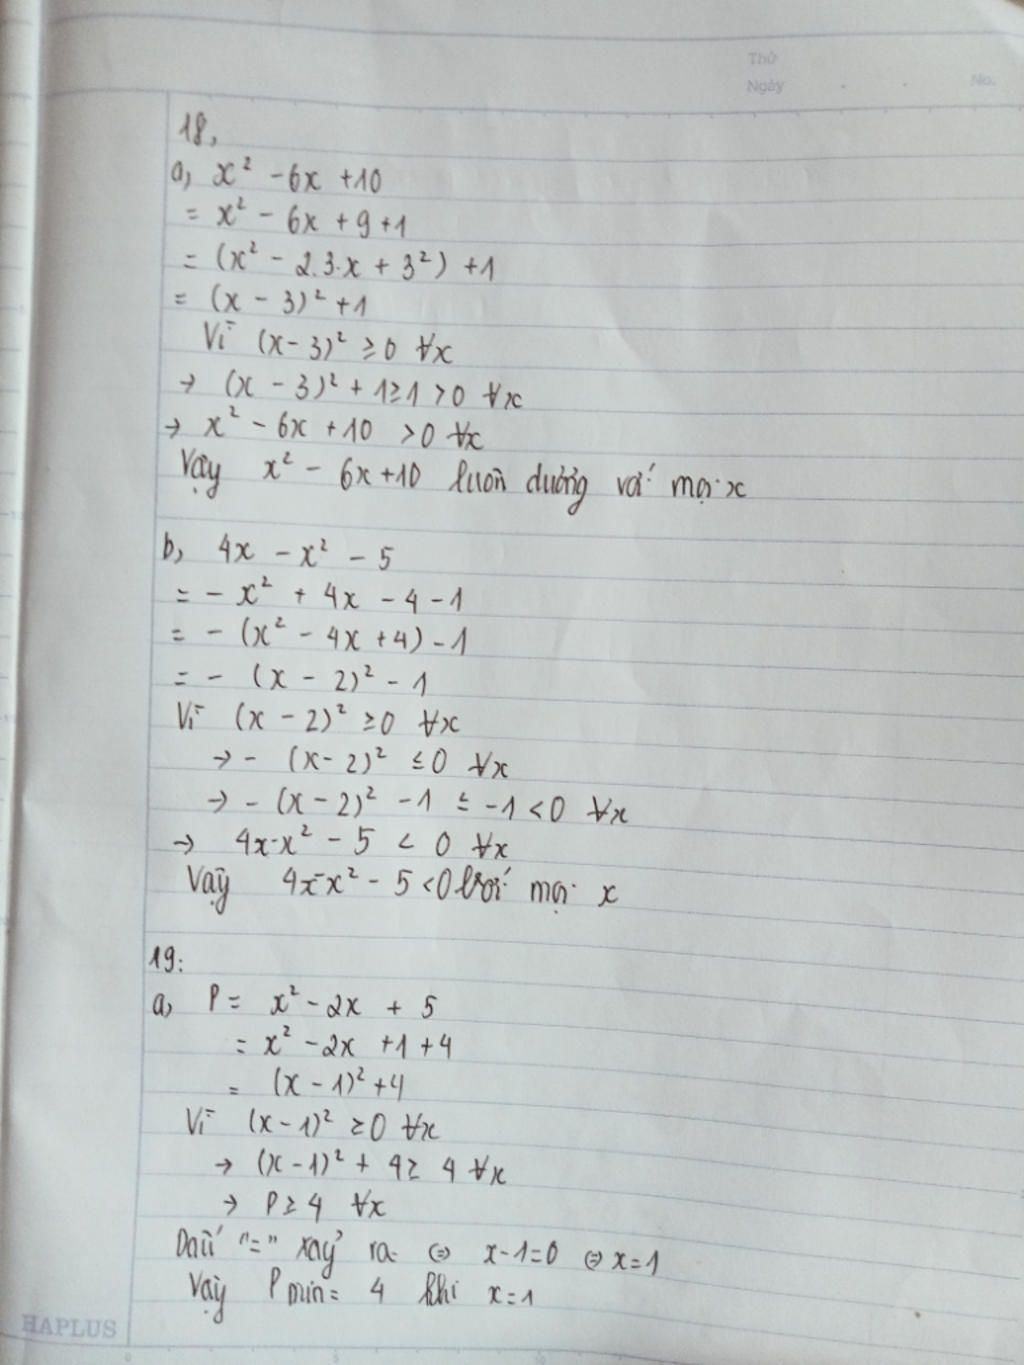 Thứ
Ngày . . No.
18,
a, x² - 6x + 10
= x² - 6x + 9 + 1
= (x² - 2.3.x + 3²) + 1
= (x - 3)² + 1
Vì (x - 3)² ≥ 0 ∀x
→ (x - 3)² + 1 ≥ 1 > 0 ∀x
→ x² - 6x + 10 > 0 ∀x
Vậy x² - 6x + 10 luôn dương với mọi x
b, 4x - x² - 5
= - x² + 4x - 4 - 1
= - (x² - 4x + 4) - 1
= - (x - 2)² - 1
Vì (x - 2)² ≥ 0 ∀x
→ - (x - 2)² ≤ 0 ∀x
→ - (x - 2)² - 1 ≤ -1 < 0 ∀x
→ 4x - x² - 5 < 0 ∀x
Vậy 4x - x² - 5 < 0 với mọi x
19:
a, P = x² - 2x + 5
= x² - 2x + 1 + 4
= (x - 1)² + 4
Vì (x - 1)² ≥ 0 ∀x
→ (x - 1)² + 4 ≥ 4 ∀x
→ P ≥ 4 ∀x
Dấu "=" xảy ra ⇔ x - 1 = 0 ⇔ x = 1
Vậy P min = 4 khi x = 1
HAPLUS